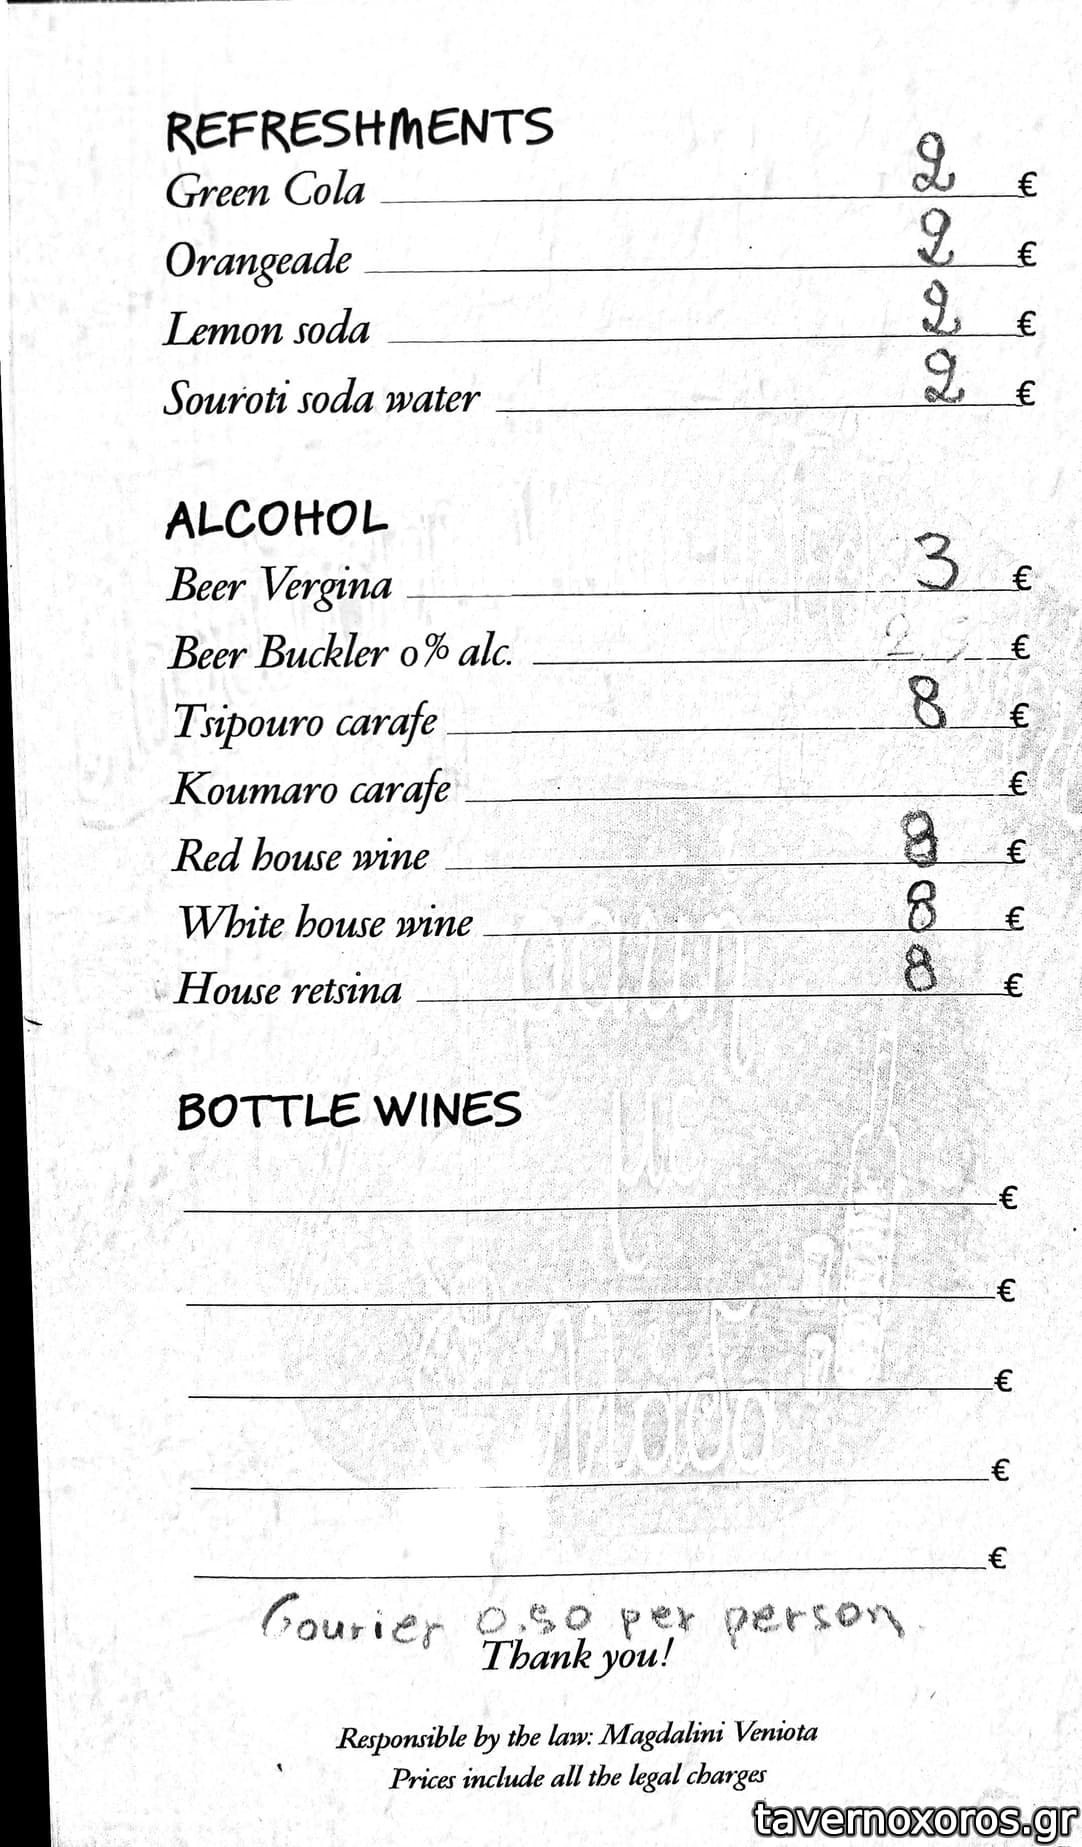 REFRESHMENTS
Green Cola 2 €
Orangeade 2 €
Lemon soda 2 €
Souroti soda water 2 €
ALCOHOL
Beer Vergina 3 €
Beer Buckler 0% alc. €
Tsipouro carafe 8 €
Koumaro carafe €
Red house wine 8 €
White house wine 8 €
House retsina 8 €
BOTTLE WINES
€
€
€
€
€
Courier 0.50 per person
Thank you!
Responsible by the law: Magdalini Veniota
Prices include all the legal charges
tavernoxoros.gr